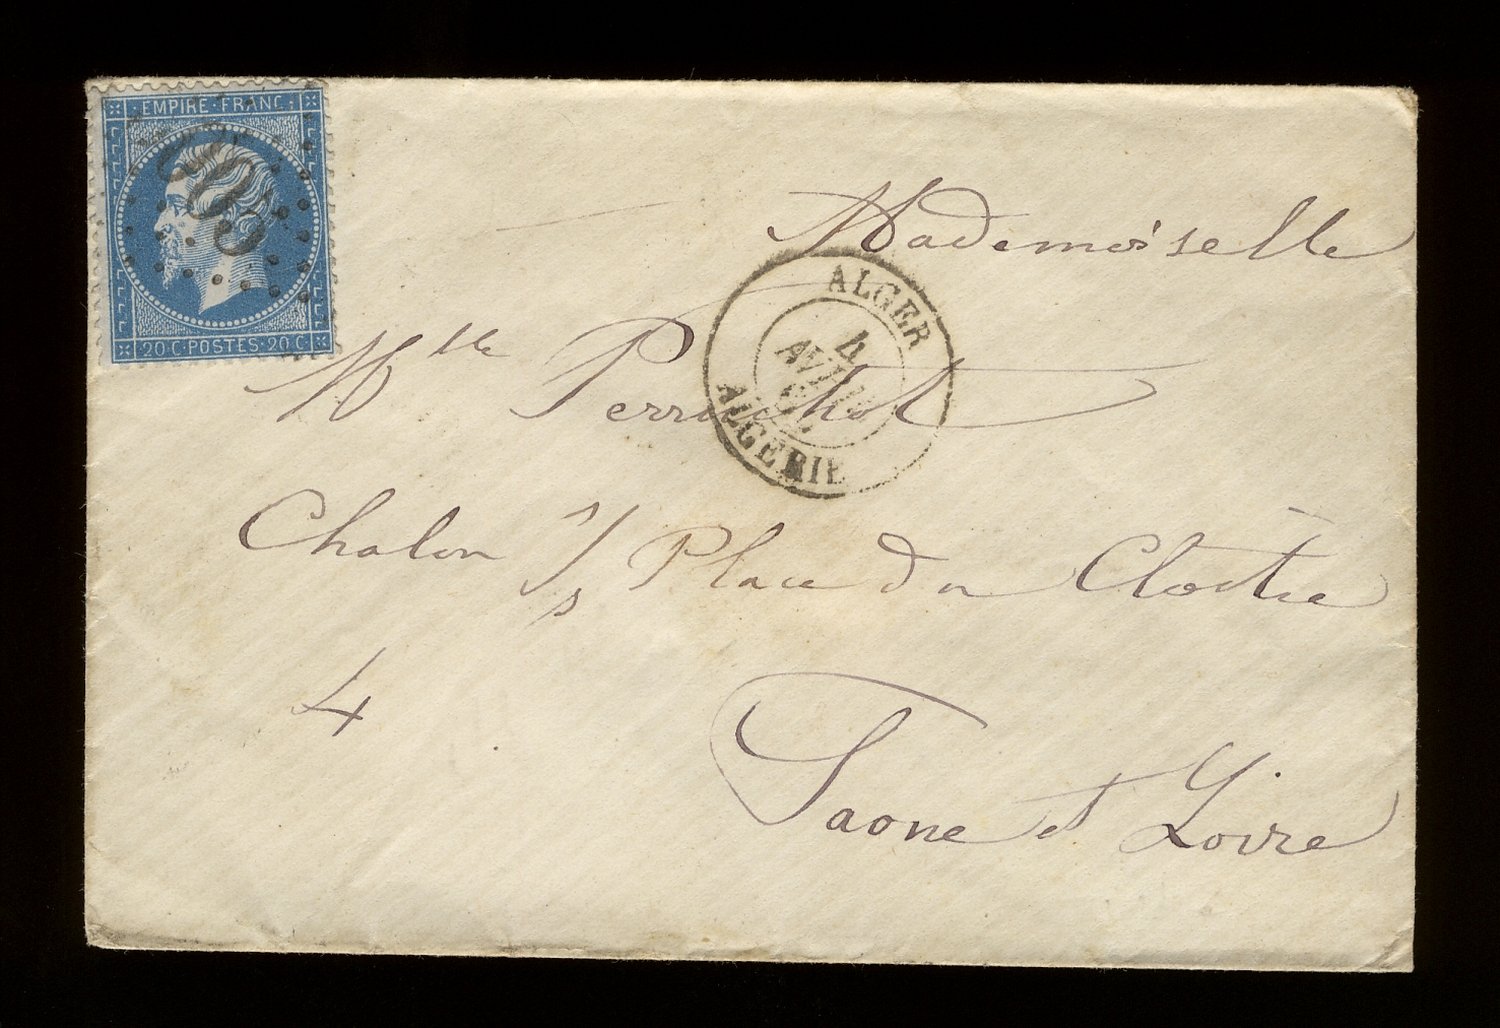 EMPIRE FRANC
20 C POSTES 20 C
Mademoiselle
ALGER
4
AVRIL
ALGERIE
Mlle Perruchot
Chalon s/s Place du Cloitre
4
Saone et Loire